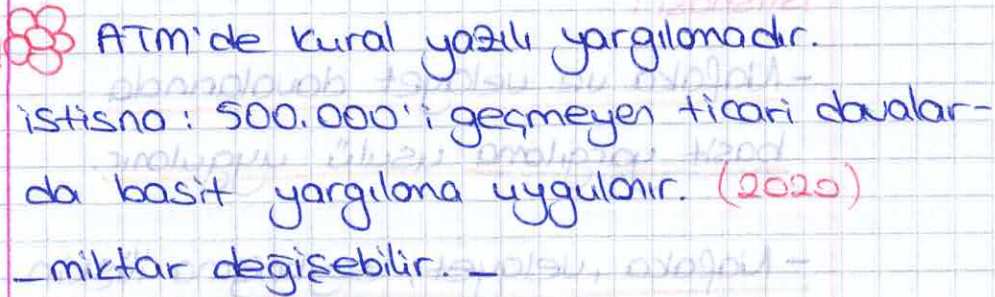 ATM'de kural yazılı yargılamadır.
istisna: 500.000'i geçmeyen ticari davalar-
da basit yargılama uygulanır. (2020)
_miktar değişebilir._